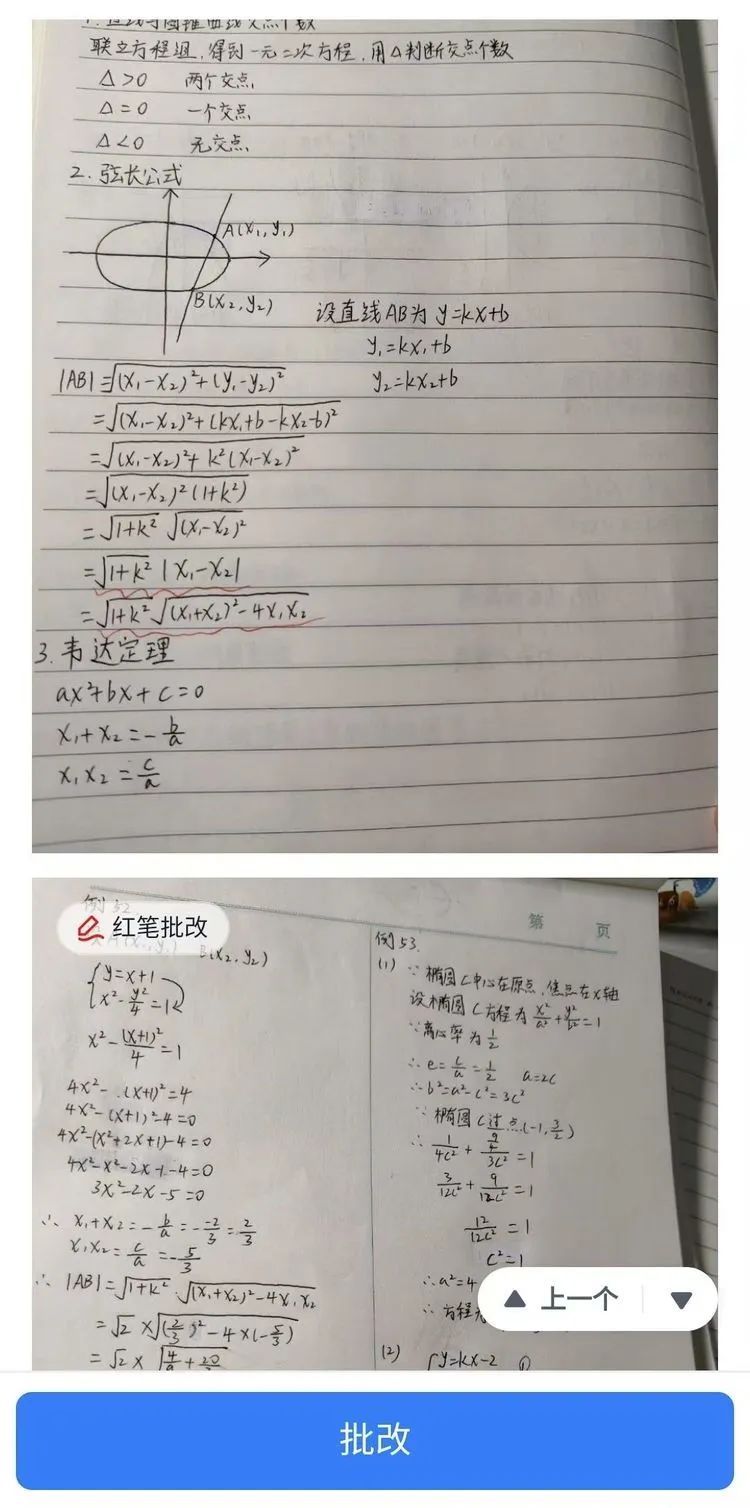 1. 直线与圆锥曲线交点个数
联立方程组,得到一元二次方程,用△判断交点个数
△>0 两个交点
△=0 一个交点
△<0 无交点
2. 弦长公式
A(x₁, y₁)
B(x₂, y₂)
设直线AB为 y=kx+b
y₁=kx₁+b
|AB|=√((x₁-x₂)²+(y₁-y₂)²) y₂=kx₂+b
=√((x₁-x₂)²+(kx₁+b-kx₂-b)²)
=√((x₁-x₂)²+k²(x₁-x₂)²)
=√((x₁-x₂)²(1+k²))
=√(1+k²) √((x₁-x₂)²)
=√(1+k²) |x₁-x₂|
=√(1+k²) √((x₁+x₂)²-4x₁x₂)
3. 韦达定理
ax²+bx+c=0
x₁+x₂=-b/a
x₁x₂=c/a
例52
红笔批改
B(x₂, y₂)
{y=x+1
x²-y²/4=1
x²-(x+1)²/4=1
4x²-(x+1)²=4
4x²-(x+1)²-4=0
4x²-(x²+2x+1)-4=0
4x²-x²-2x-1-4=0
3x²-2x-5=0
∴ x₁+x₂=-b/a=-(-2)/3=2/3
x₁x₂=c/a=-5/3
∴ |AB|=√(1+k²)·√((x₁+x₂)²-4x₁x₂)
=√2×√((2/3)²-4×(-5/3))
=√2×√(4/9+20/
第 页
例53.
(1) ∵椭圆C中心在原点,焦点在x轴
设椭圆C方程为x²/a²+y²/b²=1
∵离心率为1/2
∴e=c/a=1/2 a=2c
∴b²=a²-c²=3c²
∵椭圆C过点(-1,3/2)
∴ 1/4c²+(9/4)/3c²=1
3/12c²+9/12c²=1
12/12c²=1
c²=1
∴a²=4
∴方程为
(2) {y=kx-2 ①
上一个
批改